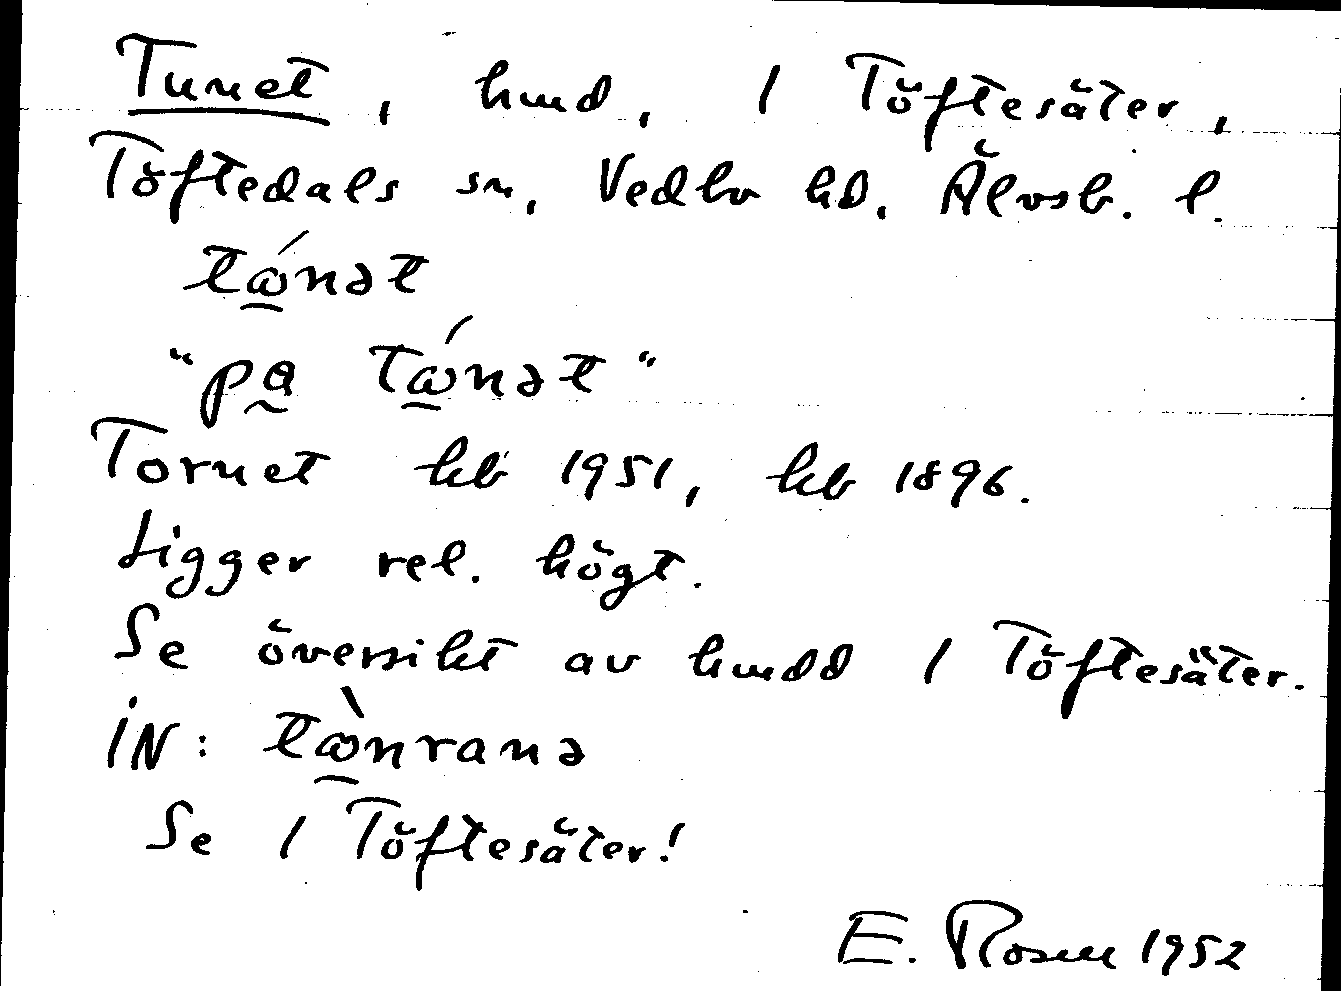 Tunet, hmd, 1 Töftesäter,
Töftedals sn, Vedbo hd. Älvsb. l.
tώ̲nət
"pa̰ tώ̲nət"
Tornet kb 1951, kb 1896.
Ligger rel. högt.
Se översikt av hmdd 1 Töftesäter.
iN: tὼ̲nranə
Se 1 Töftesäter!
E. Rosell 1952